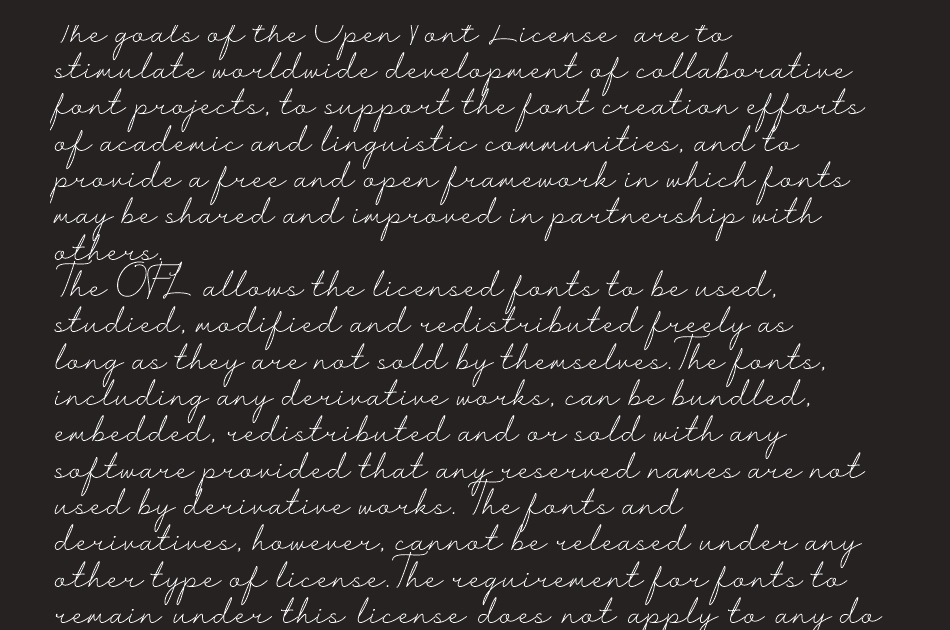 The goals of the Open Font License are to
stimulate worldwide development of collaborative
font projects, to support the font creation efforts
of academic and linguistic communities, and to
provide a free and open framework in which fonts
may be shared and improved in partnership with
others.
The OFL allows the licensed fonts to be used,
studied, modified and redistributed freely as
long as they are not sold by themselves.The fonts,
including any derivative works, can be bundled,
embedded, redistributed and or sold with any
software provided that any reserved names are not
used by derivative works. The fonts and
derivatives, however, cannot be released under any
other type of license.The requirement for fonts to
remain under this license does not apply to any do